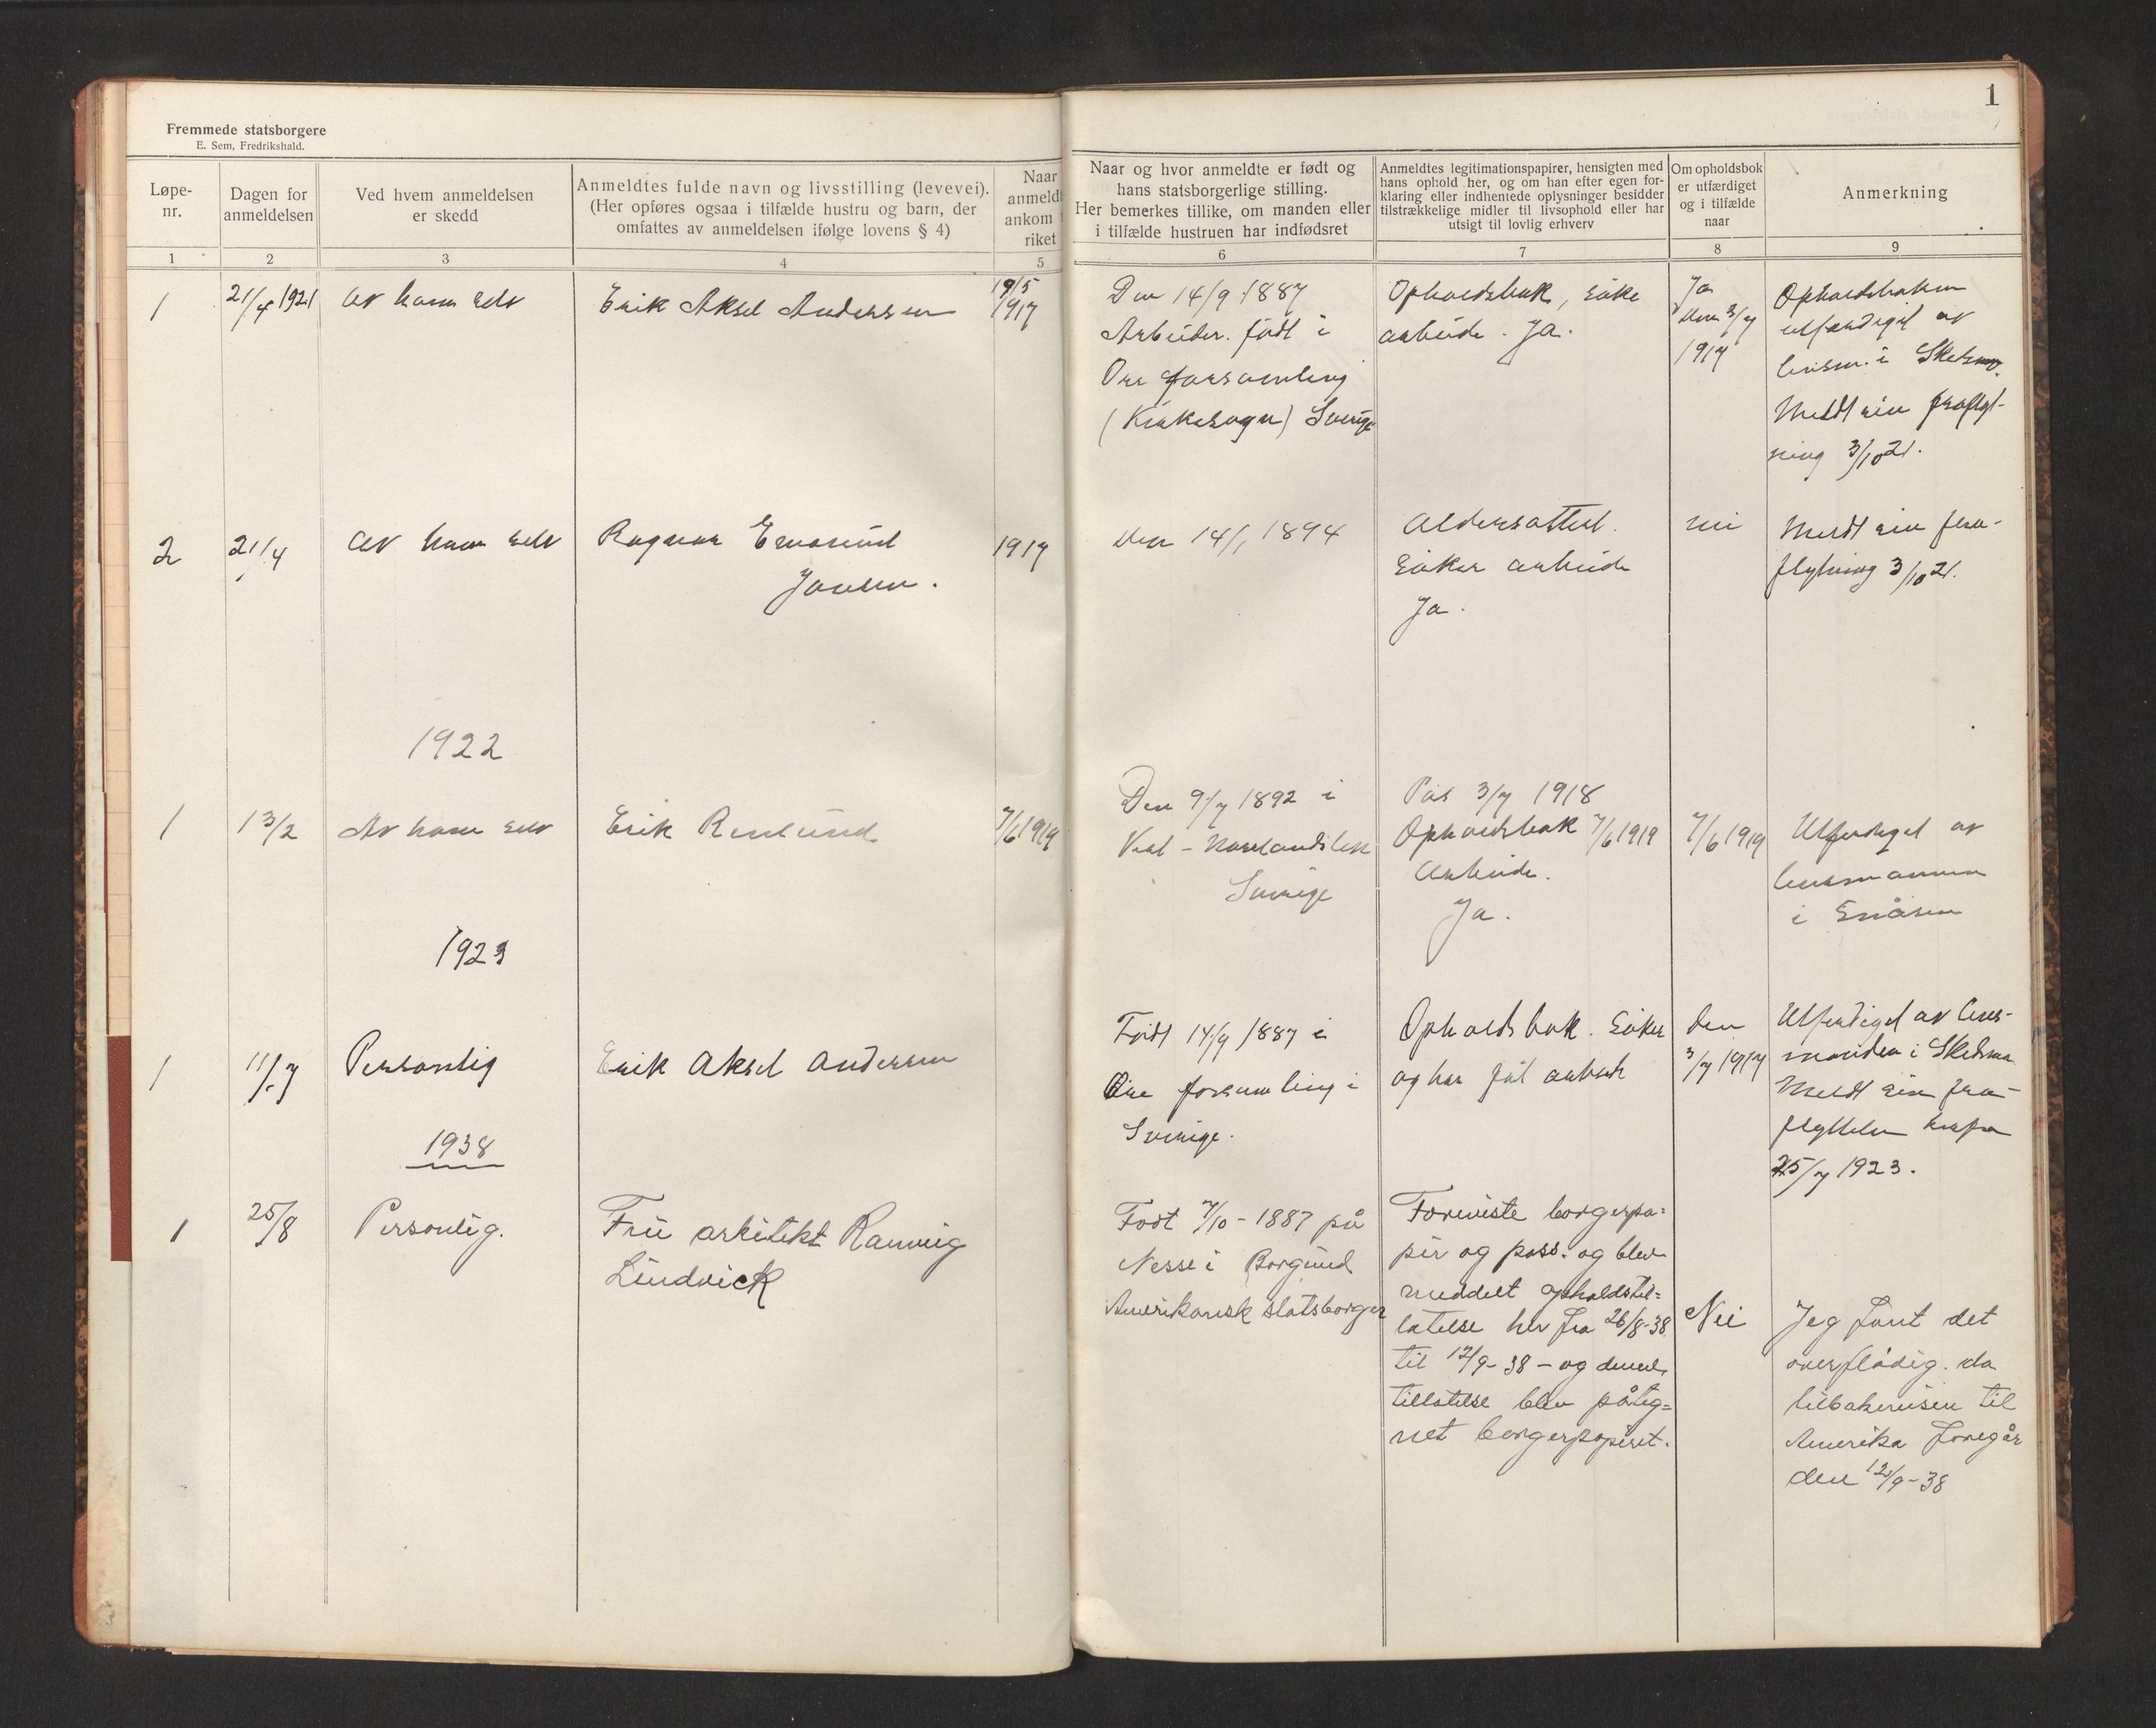 1
Fremmede statsborgere
E. Sem, Fredrikshald.
Løpe-
nr.
Dagen for
anmeldelsen
Ved hvem anmeldelsen
er skedd
Anmeldtes fulde navn og livsstilling (levevei).
(Her opføres ogsaa i tilfælde hustru og barn, der
omfattes av anmeldelsen ifølge lovens § 4)
Naar
anmeldt
ankom
riket
Naar og hvor anmeldte er født og
hans statsborgerlige stilling.
Her bemerkes tillike, om manden eller
i tilfælde hustruen har indfødsret
Anmeldtes legitimationspapirer, hensigten med
hans ophold her, og om han efter egen for-
klaring eller indhentede oplysninger besidder
tilstrækkelige midler til livsophold eller har
utsigt til lovlig erhverv
Om opholdsbok
er utfærdiget
og i tilfælde
naar
Anmerkning
1
2
3
4
5
6
7
8
9
1
21/4 1921
Av ham selv
Erik Aksel Andersen
19/5
1917
Den 14/9 1887
Arbeider. født i
Ore forsamling
(Kirkesogn) Sverige
Opholdsbok, søke
arbeide. Ja.
Ja
den 3/7
1917
Opholdsboken
utfærdiget av
lensm. i Skedsmo.
Meldt sin fraflyt-
ning 3/10 21.
2
21/4
Av ham selv
Ragnar Emanuel
Jansen.
1917
den 14/1 1894
Aldersattest.
Søker arbeide
Ja.
nei
Meldt sin fra-
flytning 3/10 21.
1922
1
13/2
Av ham selv
Erik Renlund
7/6 1919
Den 9/7 1892 i
Sverige
Pas 3/7 1918
Opholdsbok 7/6 1919
Arbeide.
Ja.
7/6 1919
Utferdiget av
lensmannen
i Snåsen
1923
1
11/7
Personlig
Erik Aksel Andersen
Født 14/9 1887 i
Ore forsamling i
Sverige.
Opholdsbok. Søker
og har fåt arbeide
den
3/7 1917
Utferdiget av lens-
manden i Skedsmo
Meldt sin fra-
flyttelse herfra
25/7 1923.
1938
1
25/8
Personlig.
Fru arkitekt Rannveig
Lindvick
Født 7/10 - 1887 på
Nesse i Borgund
Amerikansk statsborger
Foreviste borgerpa=
pir og pass. og blev
meddelt opholdstil=
latelse her fra 26/8-38
til 12/9-38 - og denne
tillatelse blev påteg=
net borgerpapiret.
Nei
Jeg fant det
overflødig. da
tilbakereisen til
Amerika foregår
den 12/9-38